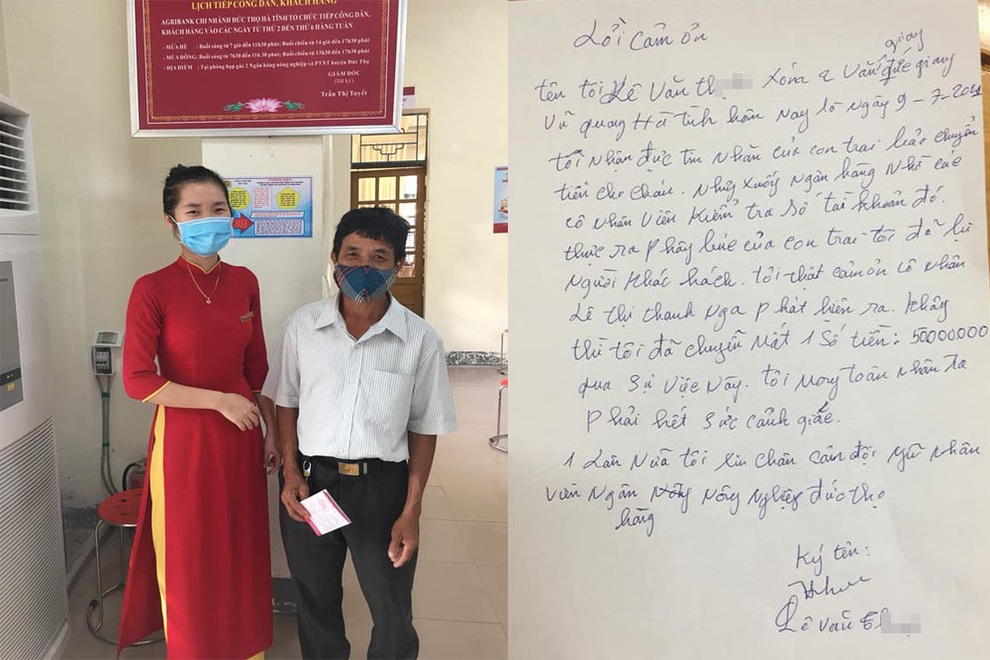 LỊCH TIẾP CÔNG DÂN, KHÁCH HÀNG
AGRIBANK CHI NHÁNH ĐỨC THỌ HÀ TĨNH TỔ CHỨC TIẾP CÔNG DÂN,
KHÁCH HÀNG VÀO CÁC NGÀY TỪ THỨ 2 ĐẾN THỨ 6 HÀNG TUẦN
- MÙA HÈ : Buổi sáng từ 7giờ đến 11h30 phút; Buổi chiều từ 14 giờ đến 17h30 phút
- MÙA ĐÔNG: Buổi sáng từ 7h30 đến 11h 30 phút; Buổi chiều từ 13h30 đến 17h30 phút
- ĐỊA ĐIỂM : Tại phòng họp gác 2 Ngân hàng nông nghiệp và PTNT huyện Đức Thọ
GIÁM ĐỐC
(Đã ký)
Trần Thị Tuyết
Lời cảm ơn
tên tôi Lê Văn th xóm 2 Văn giang
Vũ quang Hà tĩnh hôm nay là ngày 9-7-2021
tôi nhận được tin nhắn của con trai bảo chuyển
tiền cho cháu. Nhưng xuống ngân hàng nhờ các
cô nhân viên kiểm tra số tài khoản đó.
thực ra phây búc của con trai tôi đã bị
người khác hách. tôi thật cảm ơn cô nhân
Lê thị thanh Nga phát hiện ra. không
thì tôi đã chuyển mất 1 số tiền: 50000.000
qua sự việc này. tôi mong toàn nhân ta
phải hết sức cảnh giác.
1 lần nữa tôi xin chân cản đội ngũ nhân
viên ngân hàng Nông nghiệp đức thọ
Ký tên:
Lê văn th